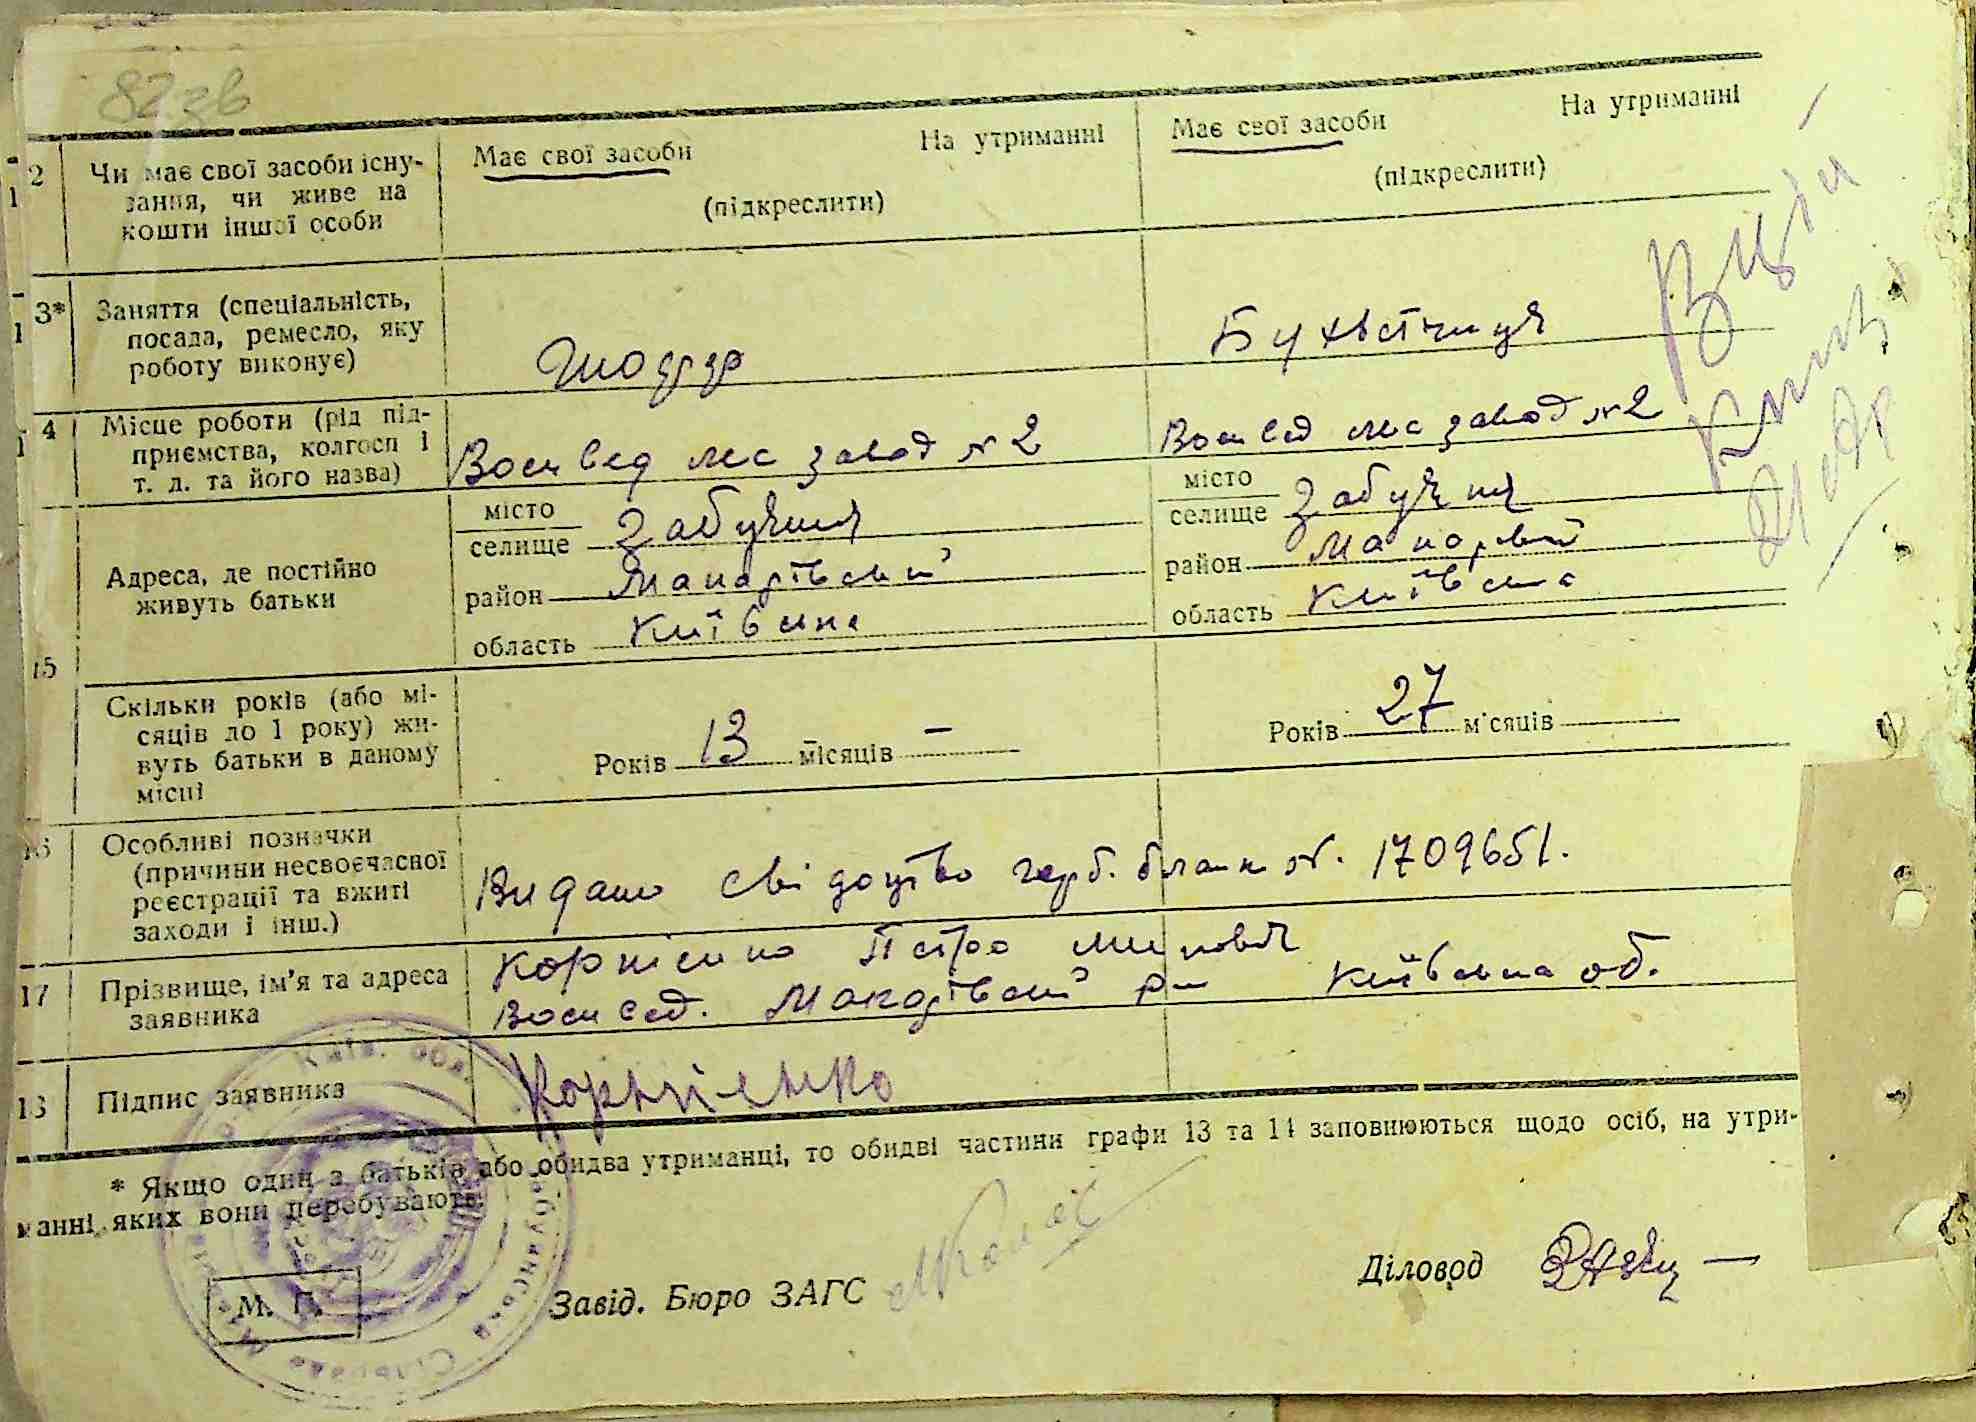 82 зв
2 Чи має свої засоби існу-
вання, чи живе на
кошти іншої особи
Має свої засоби На утриманні
(підкреслити)
Має свої засоби На утриманні
(підкреслити)
3* Заняття (спеціальність,
посада, ремесло, яку
роботу виконує)
Шофер
Бухвєтчиця
4 Місце роботи (рід під-
приємства, колгосп і
т. д. та його назва)
Воєнвед лес завод № 2
Воєнвед лес завод № 2
15 Адреса, де постійно
живуть батьки
місто
селище Забуччя
район Макарівський
область Київська
місто
селище Забуччя
район Макарівсий
область Київська
Скільки років (або мі-
сяців до 1 року) жи-
вуть батьки в даному
місці
Років 13 місяців –
Років 27 м'сяців
16 Особливі позначки
(причини несвоєчасної
реєстрації та вжиті
заходи і інш.)
Видано свідоцтво герб. бланк №. 1709651.
17 Прізвище, ім'я та адреса
заявника
Корнієнко Петро
Воєнвед. Макарівський р-н Київська об.
18 Підпис заявника
Корнієнко
* Якщо один з батьків або обидва утриманці, то обидві частини графи 13 та 14 заповнюються щодо осіб, на утри-
манні яких вони перебувають.
Київ. обл.
Забучанська Сільрада
М. П.
Завід. Бюро ЗАГС
Діловод